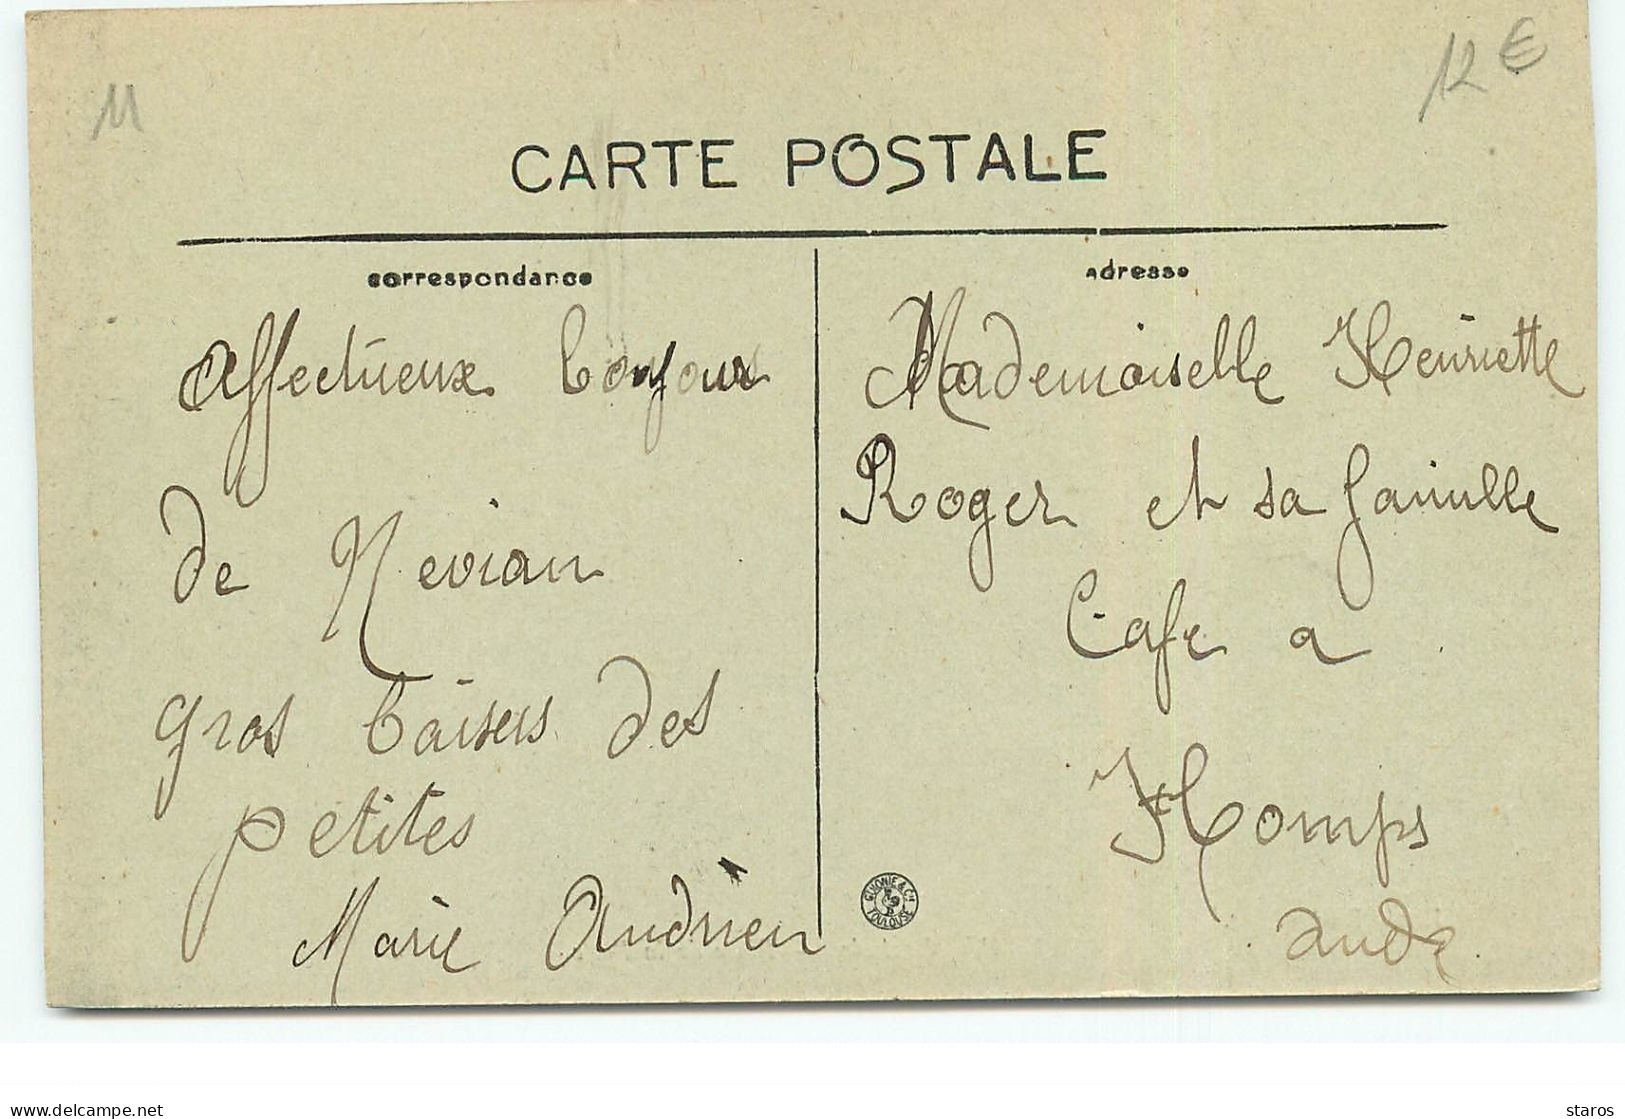 11
12 €
CARTE POSTALE
correspondance
adresse
Affectueux bonjour
de Nevian
gros baisers des
petites
Marie Andrieu
Mademoiselle Henriette
Roger et sa famille
Cafe a
Homps
aude
GUIONIE & Cie
TOULOUSE
delcampe.net
staros